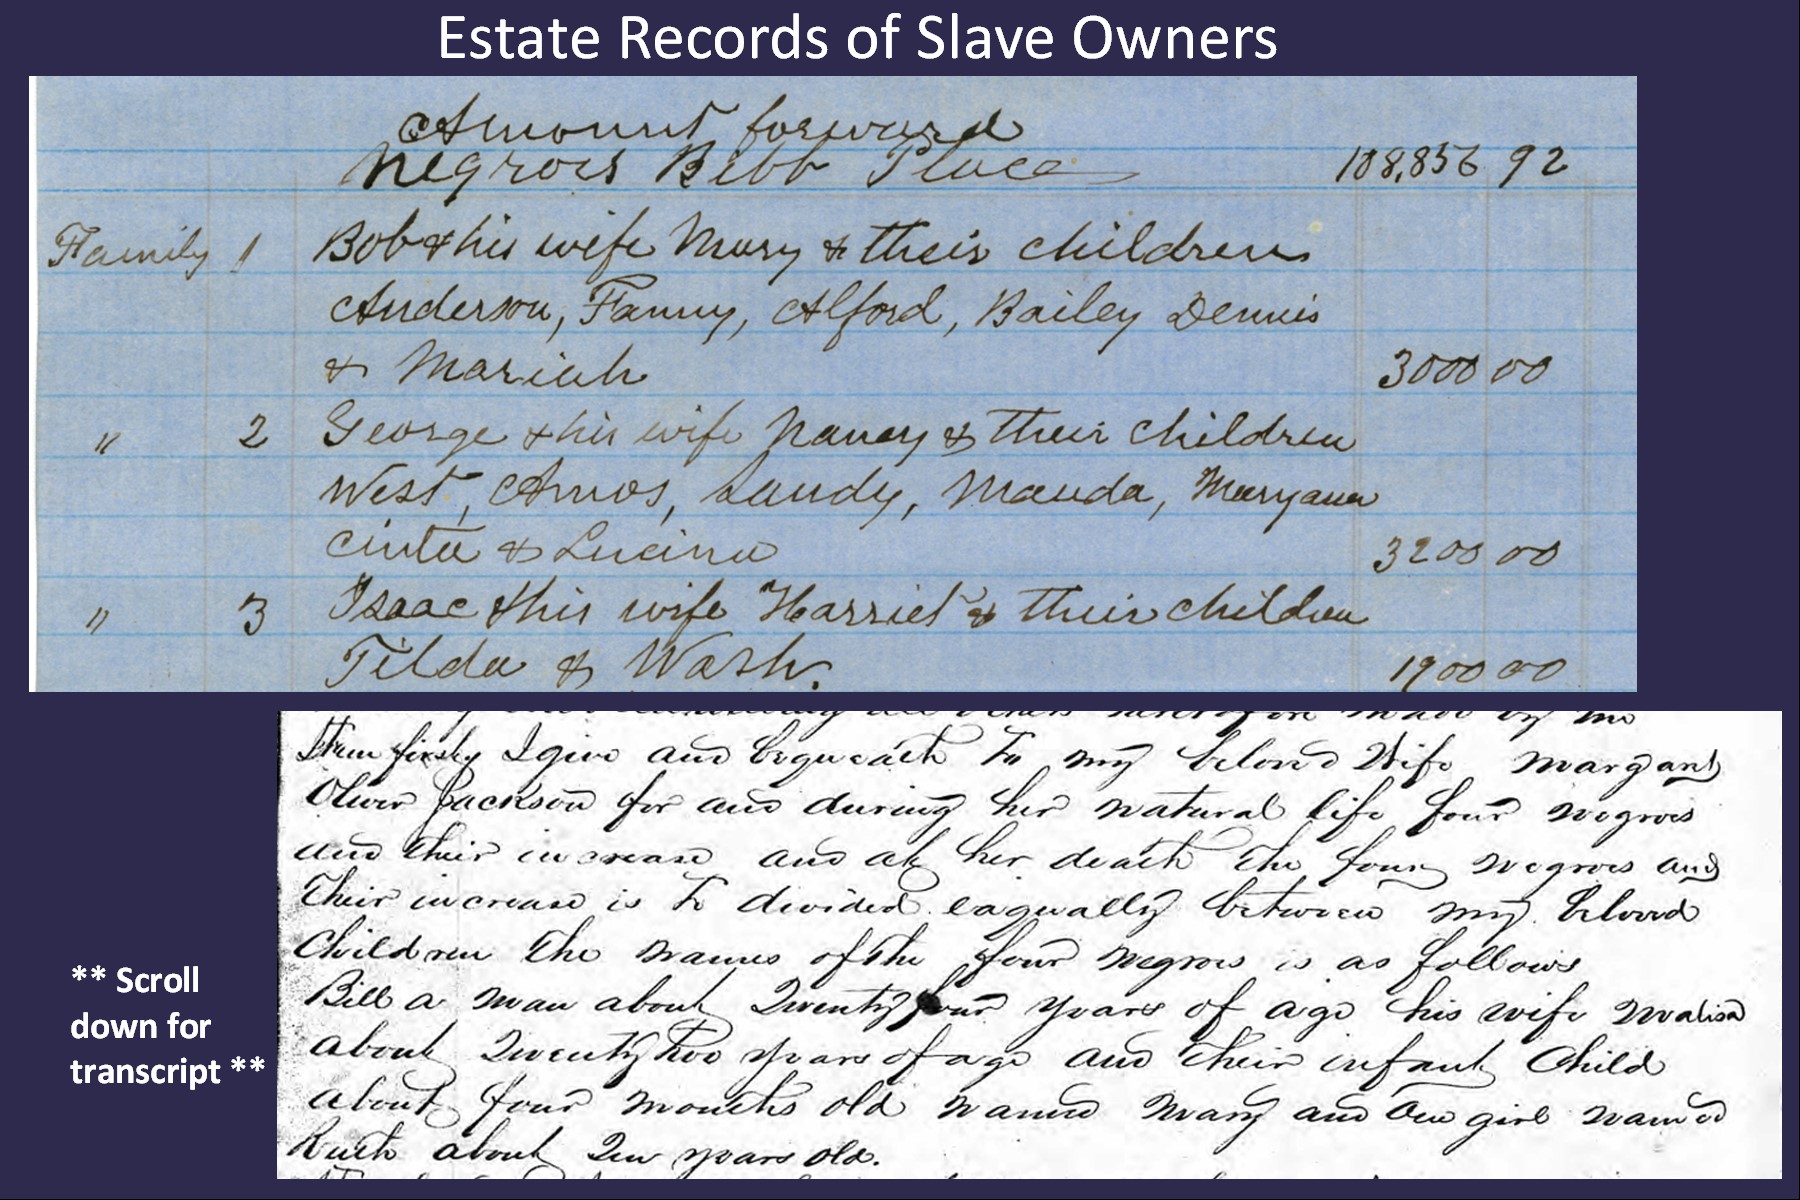 Estate Records of Slave Owners
Amount forward
Negroes Bibb Place 108,856 92
Family 1 Bob & his wife Mary & their children
Anderson, Fanny, Alford, Bailey Dennis
& Mariah 3000 00
" 2 George & his wife Nancy & their children
West, Amos, Sandy, Manda, Maryann
Cinta & Lucina 3200 00
" 3 Isaac & his wife Harriet & their children
Tilda & Wash. 1900 00
all others heretofore made by me
Item firstly I give and bequeath to my beloved Wife Margant
Oliver Jackson for and during her natural life four negroes
and their increase and at her death the four negroes and
their increase is to divided eaqually between my beloved
Children the names of the four negroes is as follows
Bill a man about Twenty four years of age his wife Malisa
about Twenty two years of age and their infant Child
about four months old named Mary and one girl named
Ruth about Ten years old.
** Scroll
down for
transcript **